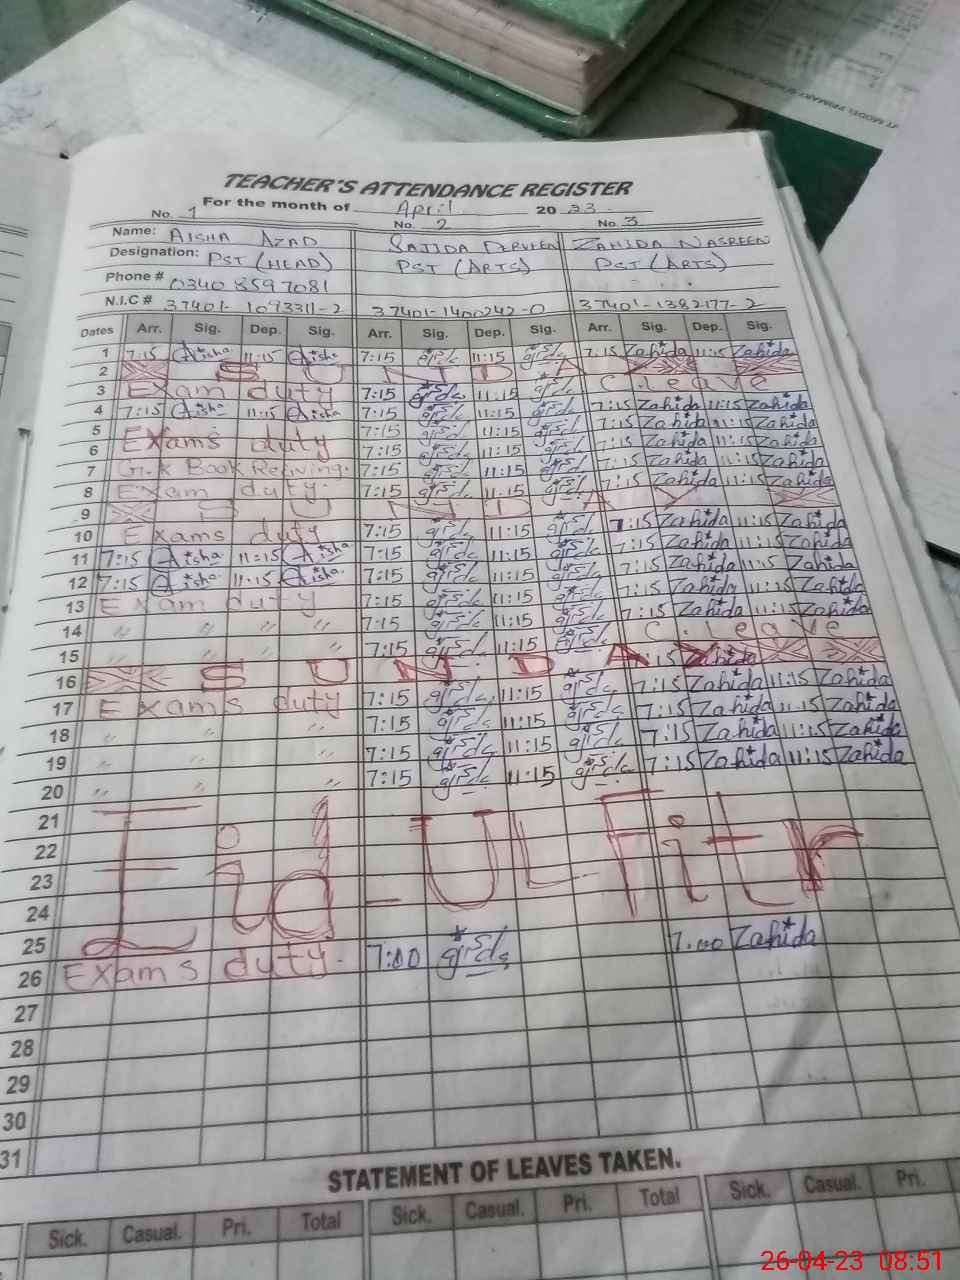 TEACHER'S ATTENDANCE REGISTER
For the month of April 20 23
No. 1 No. 2 No. 3
Name: AISHA AZAD SAJIDA PERVEEN ZAHIDA NASREEN
Designation: PST (HEAD) PST (ARTS) PST (ARTS)
Phone # 0340 8597081
N.I.C # 37401-1093311-2 37401-1400242-0 37401-1382177-2
Dates Arr. Sig. Dep. Sig. Arr. Sig. Dep. Sig. Arr. Sig. Dep. Sig.
1 7:15 Aisha 11:15 Aisha 7:15 11:15 7:15 Zahida 11:15 Zahida
2 SUNDAY
3 Exam duty 7:15 11:15 C. leave
4 7:15 Aisha 11:15 Aisha 7:15 11:15 7:15 Zahida 11:15 Zahida
5 7:15 11:15 7:15 Zahida 11:15 Zahida
6 Exams duty 7:15 11:15 7:15 Zahida 11:15 Zahida
7 G.K Book 7:15 11:15 7:15 Zahida 11:15 Zahida
8 Exam duty. 7:15 11:15
9 SUNDAY
10 Exams duty 7:15 11:15 7:15 Zahida 11:15 Zahida
11 7:15 Aisha 11:15 Aisha 7:15 11:15 7:15 Zahida 11:15 Zahida
12 7:15 Aisha 11:15 Aisha 7:15 11:15 7:15 Zahida 11:15 Zahida
13 Exam duty 7:15 11:15 7:15 Zahida 11:15 Zahida
14 " " " " 7:15 11:15 C. leave
15 " " " " 7:15 11:15 7:15 Zahida
16 SUNDAY 7:15 Zahida 11:15 Zahida
17 Exams duty 7:15 11:15 7:15 Zahida 11:15 Zahida
18 " " " " 7:15 11:15 7:15 Zahida 11:15 Zahida
19 " " " " 7:15 11:15 7:15 Zahida 11:15 Zahida
20 " " " " 7:15 11:15
21
22
Eid-UL Fitr
23
24
25
26 Exams duty. 7:00 7.00 Zahida
27
28
29
30
31
STATEMENT OF LEAVES TAKEN.
Sick. Casual. Pri. Total Sick. Casual. Pri. Total Sick. Casual. Pri.
26-04-23 08:51